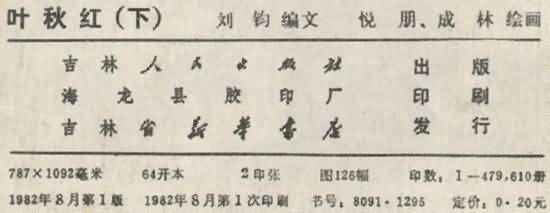 叶秋红(下) 刘钧编文 悦朋、成林绘画
吉林人民出版社 出版
海龙县胶印厂 印刷
吉林省新华书店 发行
787×1092毫米 64开本 2印张 图126幅 印数:1—479,610册
1982年8月第1版 1982年8月第1次印刷 书号:8091·1295 定价:0·20元